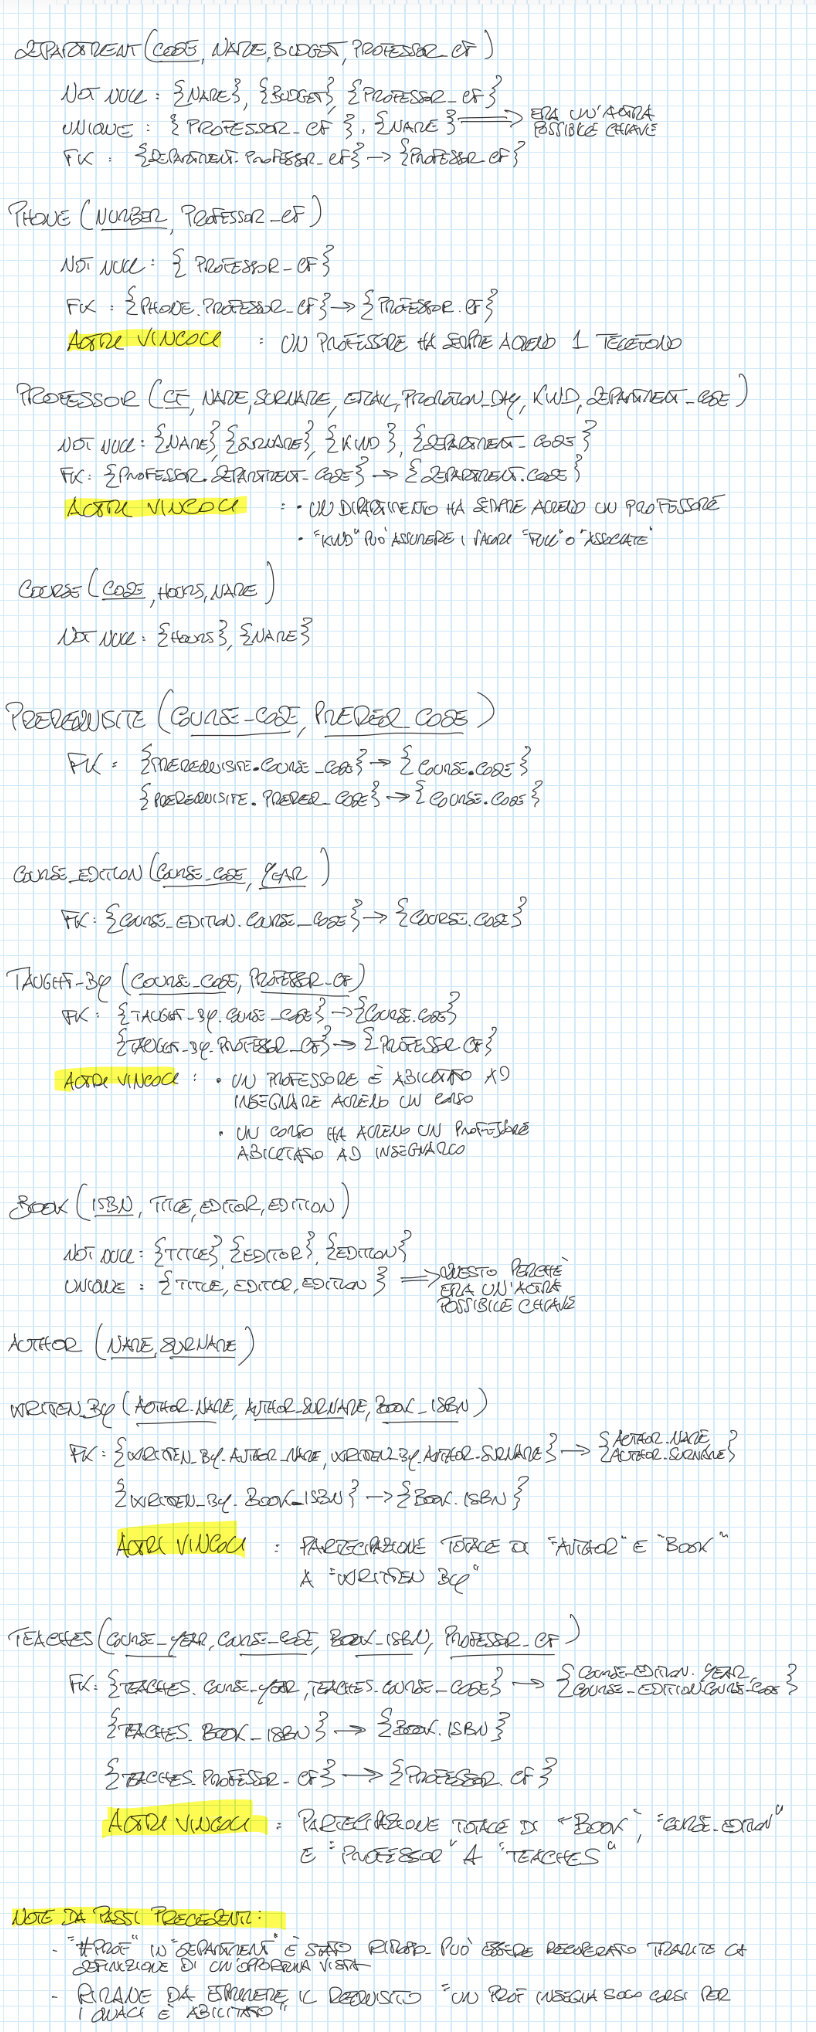 DEPARTMENT (CODE, NAME, BUDGET, PROFESSOR_CF)
NOT NULL : {NAME}, {BUDGET}, {PROFESSOR_CF}
UNIQUE : {PROFESSOR_CF}, {NAME} => ERA UN'ALTRA
POSSIBILE CHIAVE
FK : {DEPARTMENT.PROFESSOR_CF} → {PROFESSOR.CF}
PHONE (NUMBER, PROFESSOR_CF)
NOT NULL : {PROFESSOR_CF}
FK : {PHONE.PROFESSOR_CF} → {PROFESSOR.CF}
ALTRI VINCOLI : UN PROFESSORE HA SEMPRE ALMENO 1 TELEFONO
PROFESSOR (CF, NAME, SURNAME, EMAIL, PROMOTION_DAY, KIND, DEPARTMENT_CODE)
NOT NULL : {NAME}, {SURNAME}, {KIND}, {DEPARTMENT_CODE}
FK : {PROFESSOR.DEPARTMENT_CODE} → {DEPARTMENT.CODE}
ALTRI VINCOLI : • UN DIPARTIMENTO HA SEMPRE ALMENO UN PROFESSORE
• "KIND" PUÒ ASSUMERE I VALORI "FULL" O "ASSOCIATE"
COURSE (CODE, HOURS, NAME)
NOT NULL : {HOURS}, {NAME}
PREREQUISITE (COURSE_CODE, PREREQ_CODE)
FK : {PREREQUISITE.COURSE_CODE} → {COURSE.CODE}
{PREREQUISITE.PREREQ_CODE} → {COURSE.CODE}
COURSE_EDITION (COURSE_CODE, YEAR)
FK : {COURSE_EDITION.COURSE_CODE} → {COURSE.CODE}
TAUGHT_BY (COURSE_CODE, PROFESSOR_CF)
FK : {TAUGHT_BY.COURSE_CODE} → {COURSE.CODE}
{TAUGHT_BY.PROFESSOR_CF} → {PROFESSOR.CF}
ALTRI VINCOLI : • UN PROFESSORE È ABILITATO AD
INSEGNARE ALMENO UN CORSO
• UN CORSO HA ALMENO UN PROFESSORE
ABILITATO AD INSEGNARLO
BOOK (ISBN, TITLE, EDITOR, EDITION)
NOT NULL : {TITLE}, {EDITOR}, {EDITION}
UNIQUE : {TITLE, EDITOR, EDITION} => QUESTO PERCHÈ
ERA UN'ALTRA
POSSIBILE CHIAVE
AUTHOR (NAME, SURNAME)
WRITTEN_BY (AUTHOR_NAME, AUTHOR_SURNAME, BOOK_ISBN)
FK : {WRITTEN_BY.AUTHOR_NAME, WRITTEN_BY.AUTHOR_SURNAME} → {AUTHOR.NAME,
AUTHOR.SURNAME}
{WRITTEN_BY.BOOK_ISBN} → {BOOK.ISBN}
ALTRI VINCOLI : PARTECIPAZIONE TOTALE DI "AUTHOR" E "BOOK"
A "WRITTEN BY"
TEACHES (COURSE_YEAR, COURSE_CODE, BOOK_ISBN, PROFESSOR_CF)
FK : {TEACHES.COURSE_YEAR, TEACHES.COURSE_CODE} → {COURSE_EDITION.YEAR,
COURSE_EDITION.COURSE_CODE}
{TEACHES.BOOK_ISBN} → {BOOK.ISBN}
{TEACHES.PROFESSOR_CF} → {PROFESSOR.CF}
ALTRI VINCOLI : PARTECIPAZIONE TOTALE DI "BOOK", "COURSE_EDITION"
E "PROFESSOR" A "TEACHES"
NOTE DA PASSI PRECEDENTI :
- "#PROF" IN "DEPARTMENT" È STATO RIMOSSO PUÒ ESSERE RECUPERATO TRAMITE LA
DEFINIZIONE DI UN'OPPORTUNA VISTA
- RIMANE DA ESPRIMERE IL REQUISITO "UN PROF INSEGNA SOLO CORSI PER
I QUALI È ABILITATO"